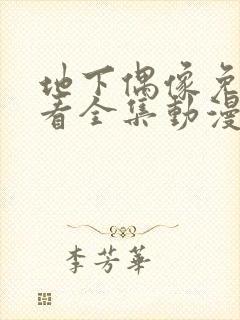 地下偶像免
看全集動漫
李芳華